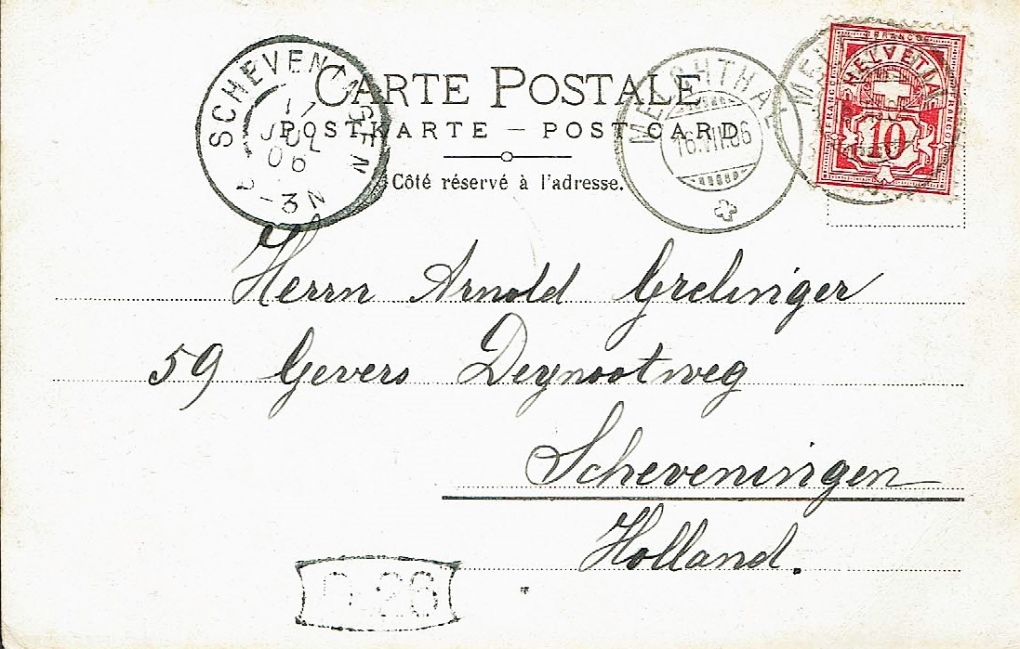 CARTE POSTALE
POSTKARTE — POST CARD
Côté réservé à l'adresse.
SCHEVENINGEN
17
JUL
06
-3N
MELCHTHAL
16.VII.06
FRANCO
HELVETIA
10
Herrn Arnold Grelinger
59 Gevers Deynootweg
Scheveningen
Holland.